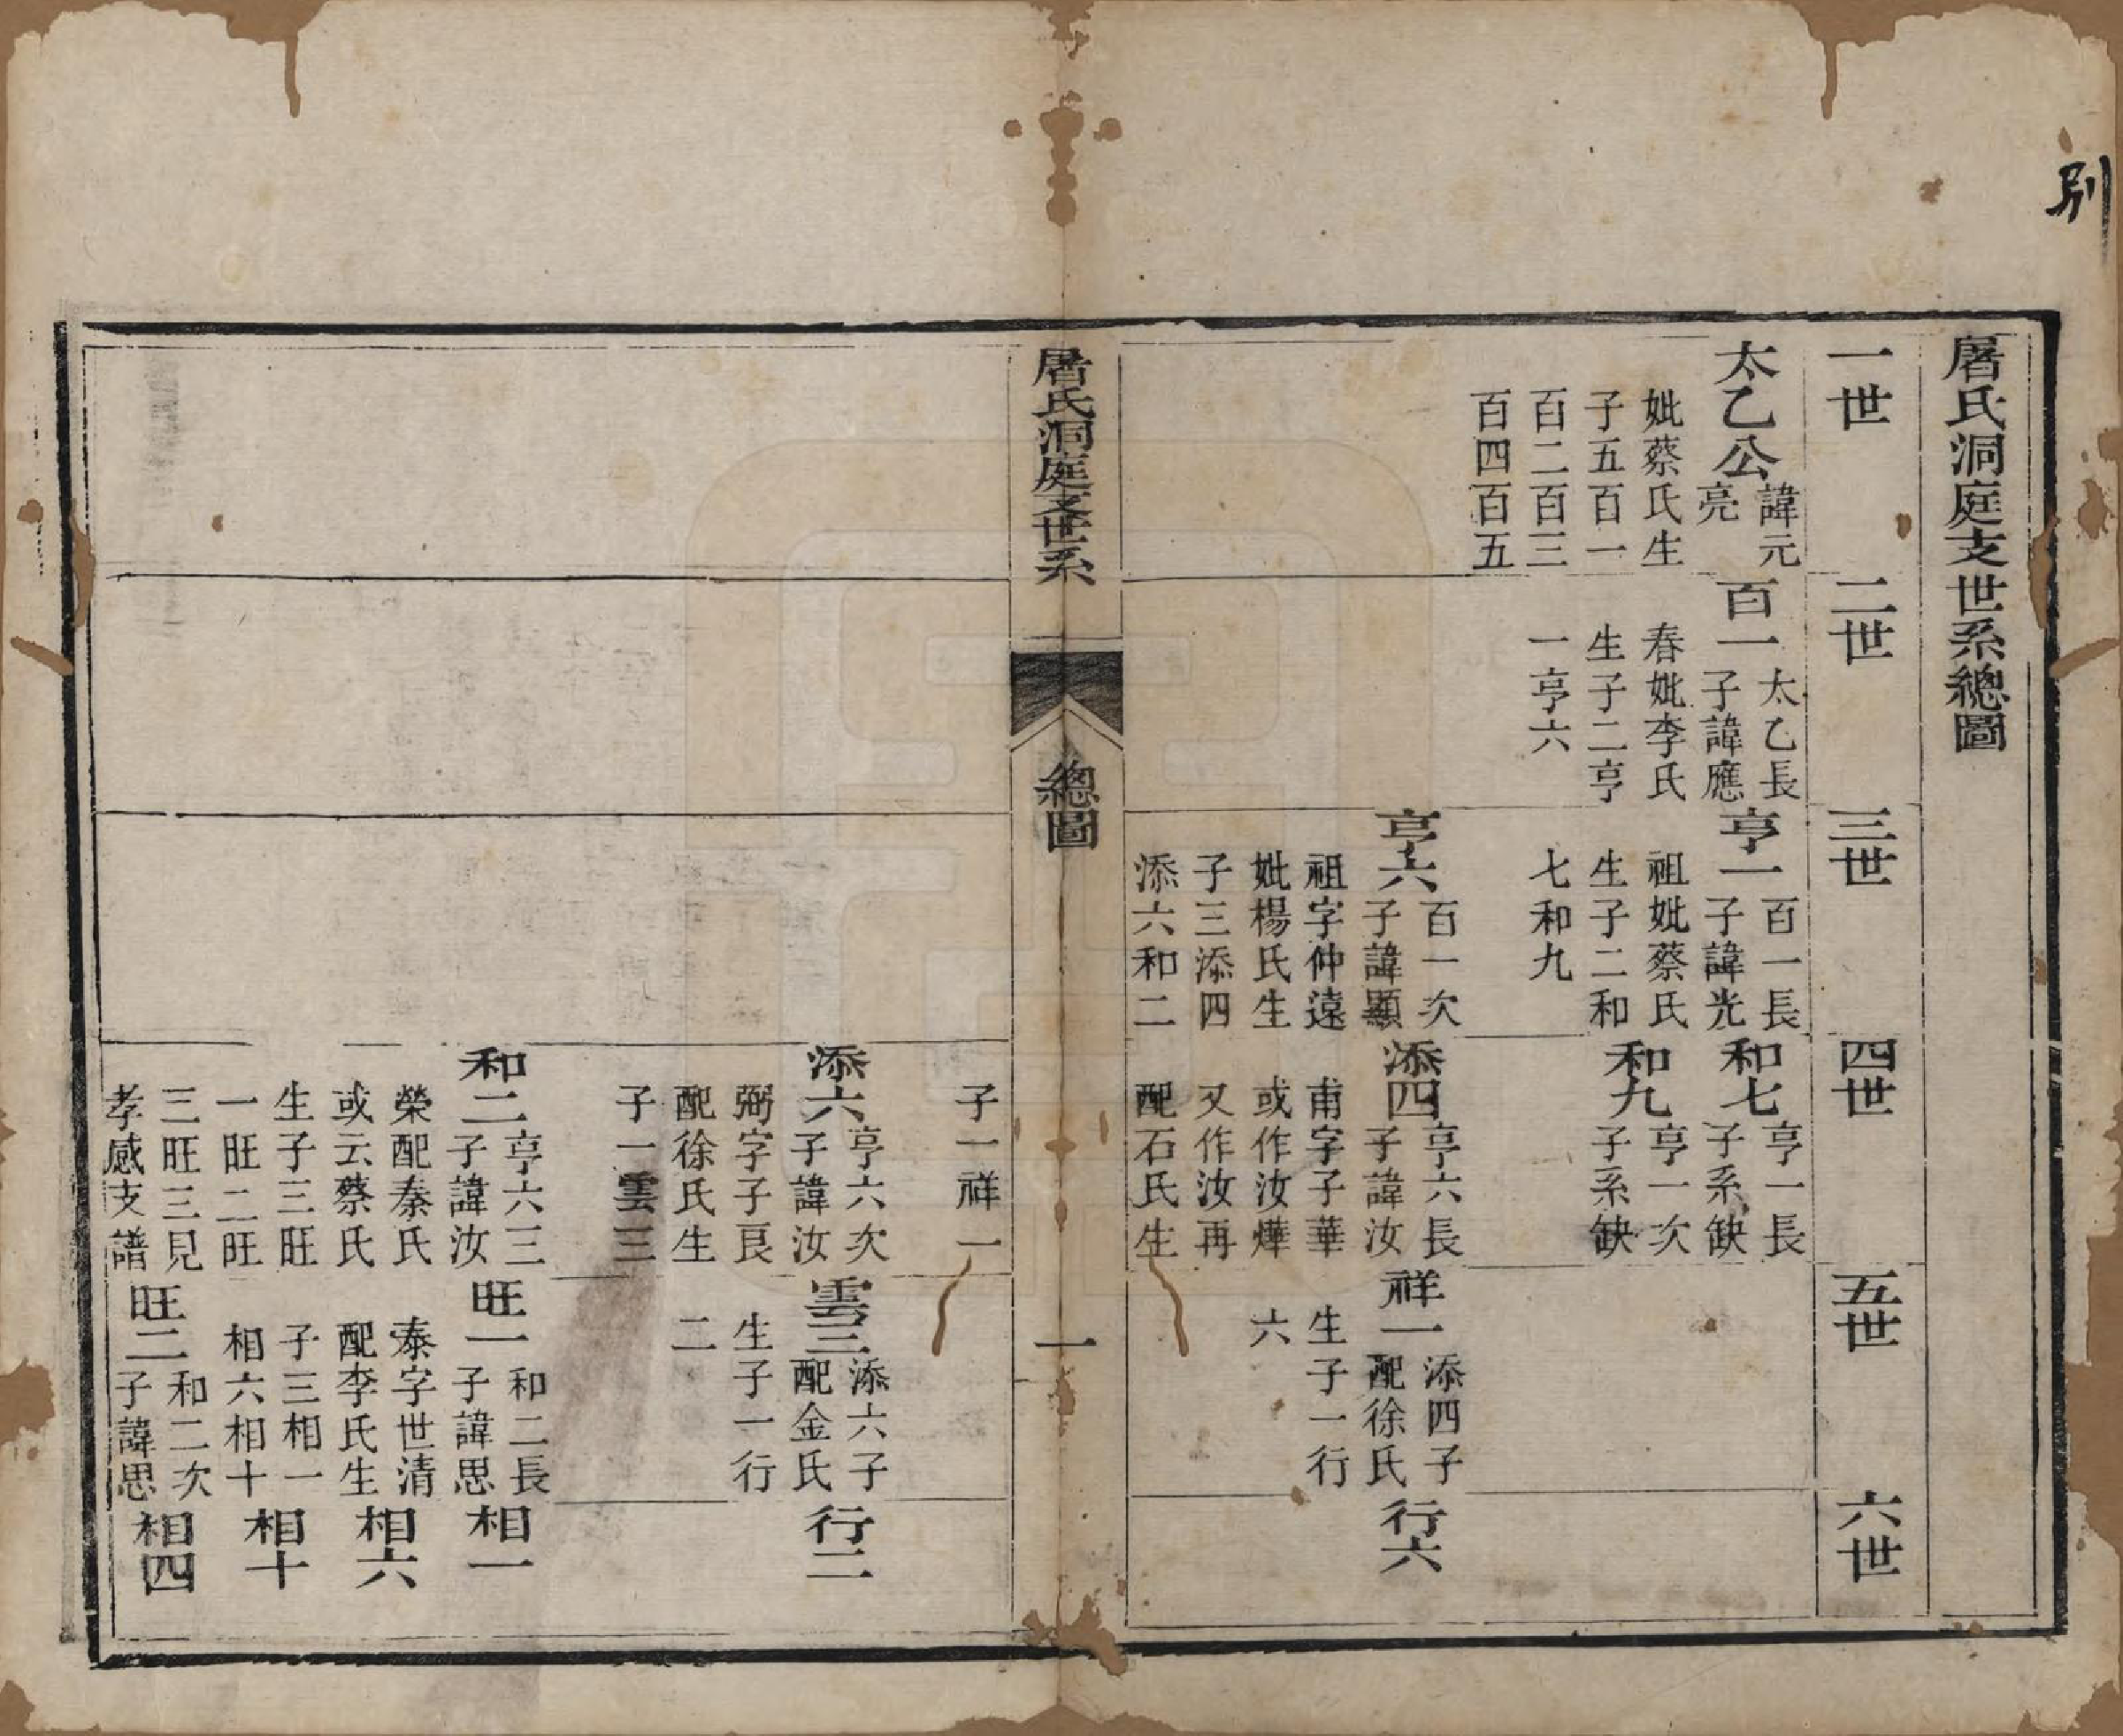 別
屠氏洞庭支世系總圖
一世
二世
三世
四世
五世
六世
太乙公
諱元
亮
妣蔡氏生
子五百一
百二百三
百四百五
百一
太乙長
子諱應
春妣李氏
生子二亨
一亨六
亨一
百一長
子諱光
祖妣蔡氏
生子二和
七和九
和七
亨一長
子系缺
和九
亨一次
子系缺
亨六
百一次
子諱顯
祖字仲遠
妣楊氏生
子三添四
添六和二
添四
亨六長
子諱汝
甫字子華
或作汝燁
又作汝再
配石氏生
祥一
添四子
配徐氏
生子一行
六
行六
屠氏洞庭支世系
總圖
一
子一祥一
添六
亨六次
子諱汝
弼字子良
配徐氏生
子一雲三
雲三
添六子
配金氏
生子一行
二
行二
和二
亨六三
子諱汝
榮配秦氏
或云蔡氏
生子三旺
一旺二旺
三旺三見
孝感支譜
旺一
和二長
子諱思
泰字世清
配李氏生
子三相一
相六相十
旺二
和二次
子諱思
相一
相六
相十
相四